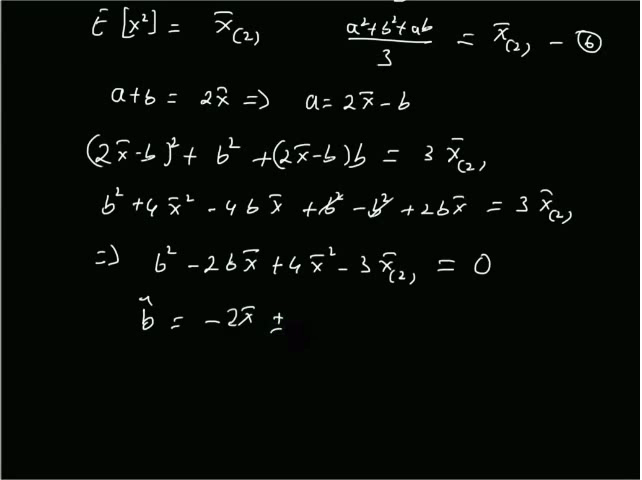 E[x²] = x̄₍₂₎   (a²+b²+ab)/3 = x̄₍₂₎ – ⑥
a+b = 2x̄ => a = 2x̄ – b
(2x̄-b)² + b² + (2x̄-b)b = 3 x̄₍₂₎
b² + 4x̄² - 4bx̄ + b² - b² + 2bx̄ = 3 x̄₍₂₎
=> b² - 2bx̄ + 4x̄² - 3x̄₍₂₎ = 0
b̂ = - 2x̄ ±